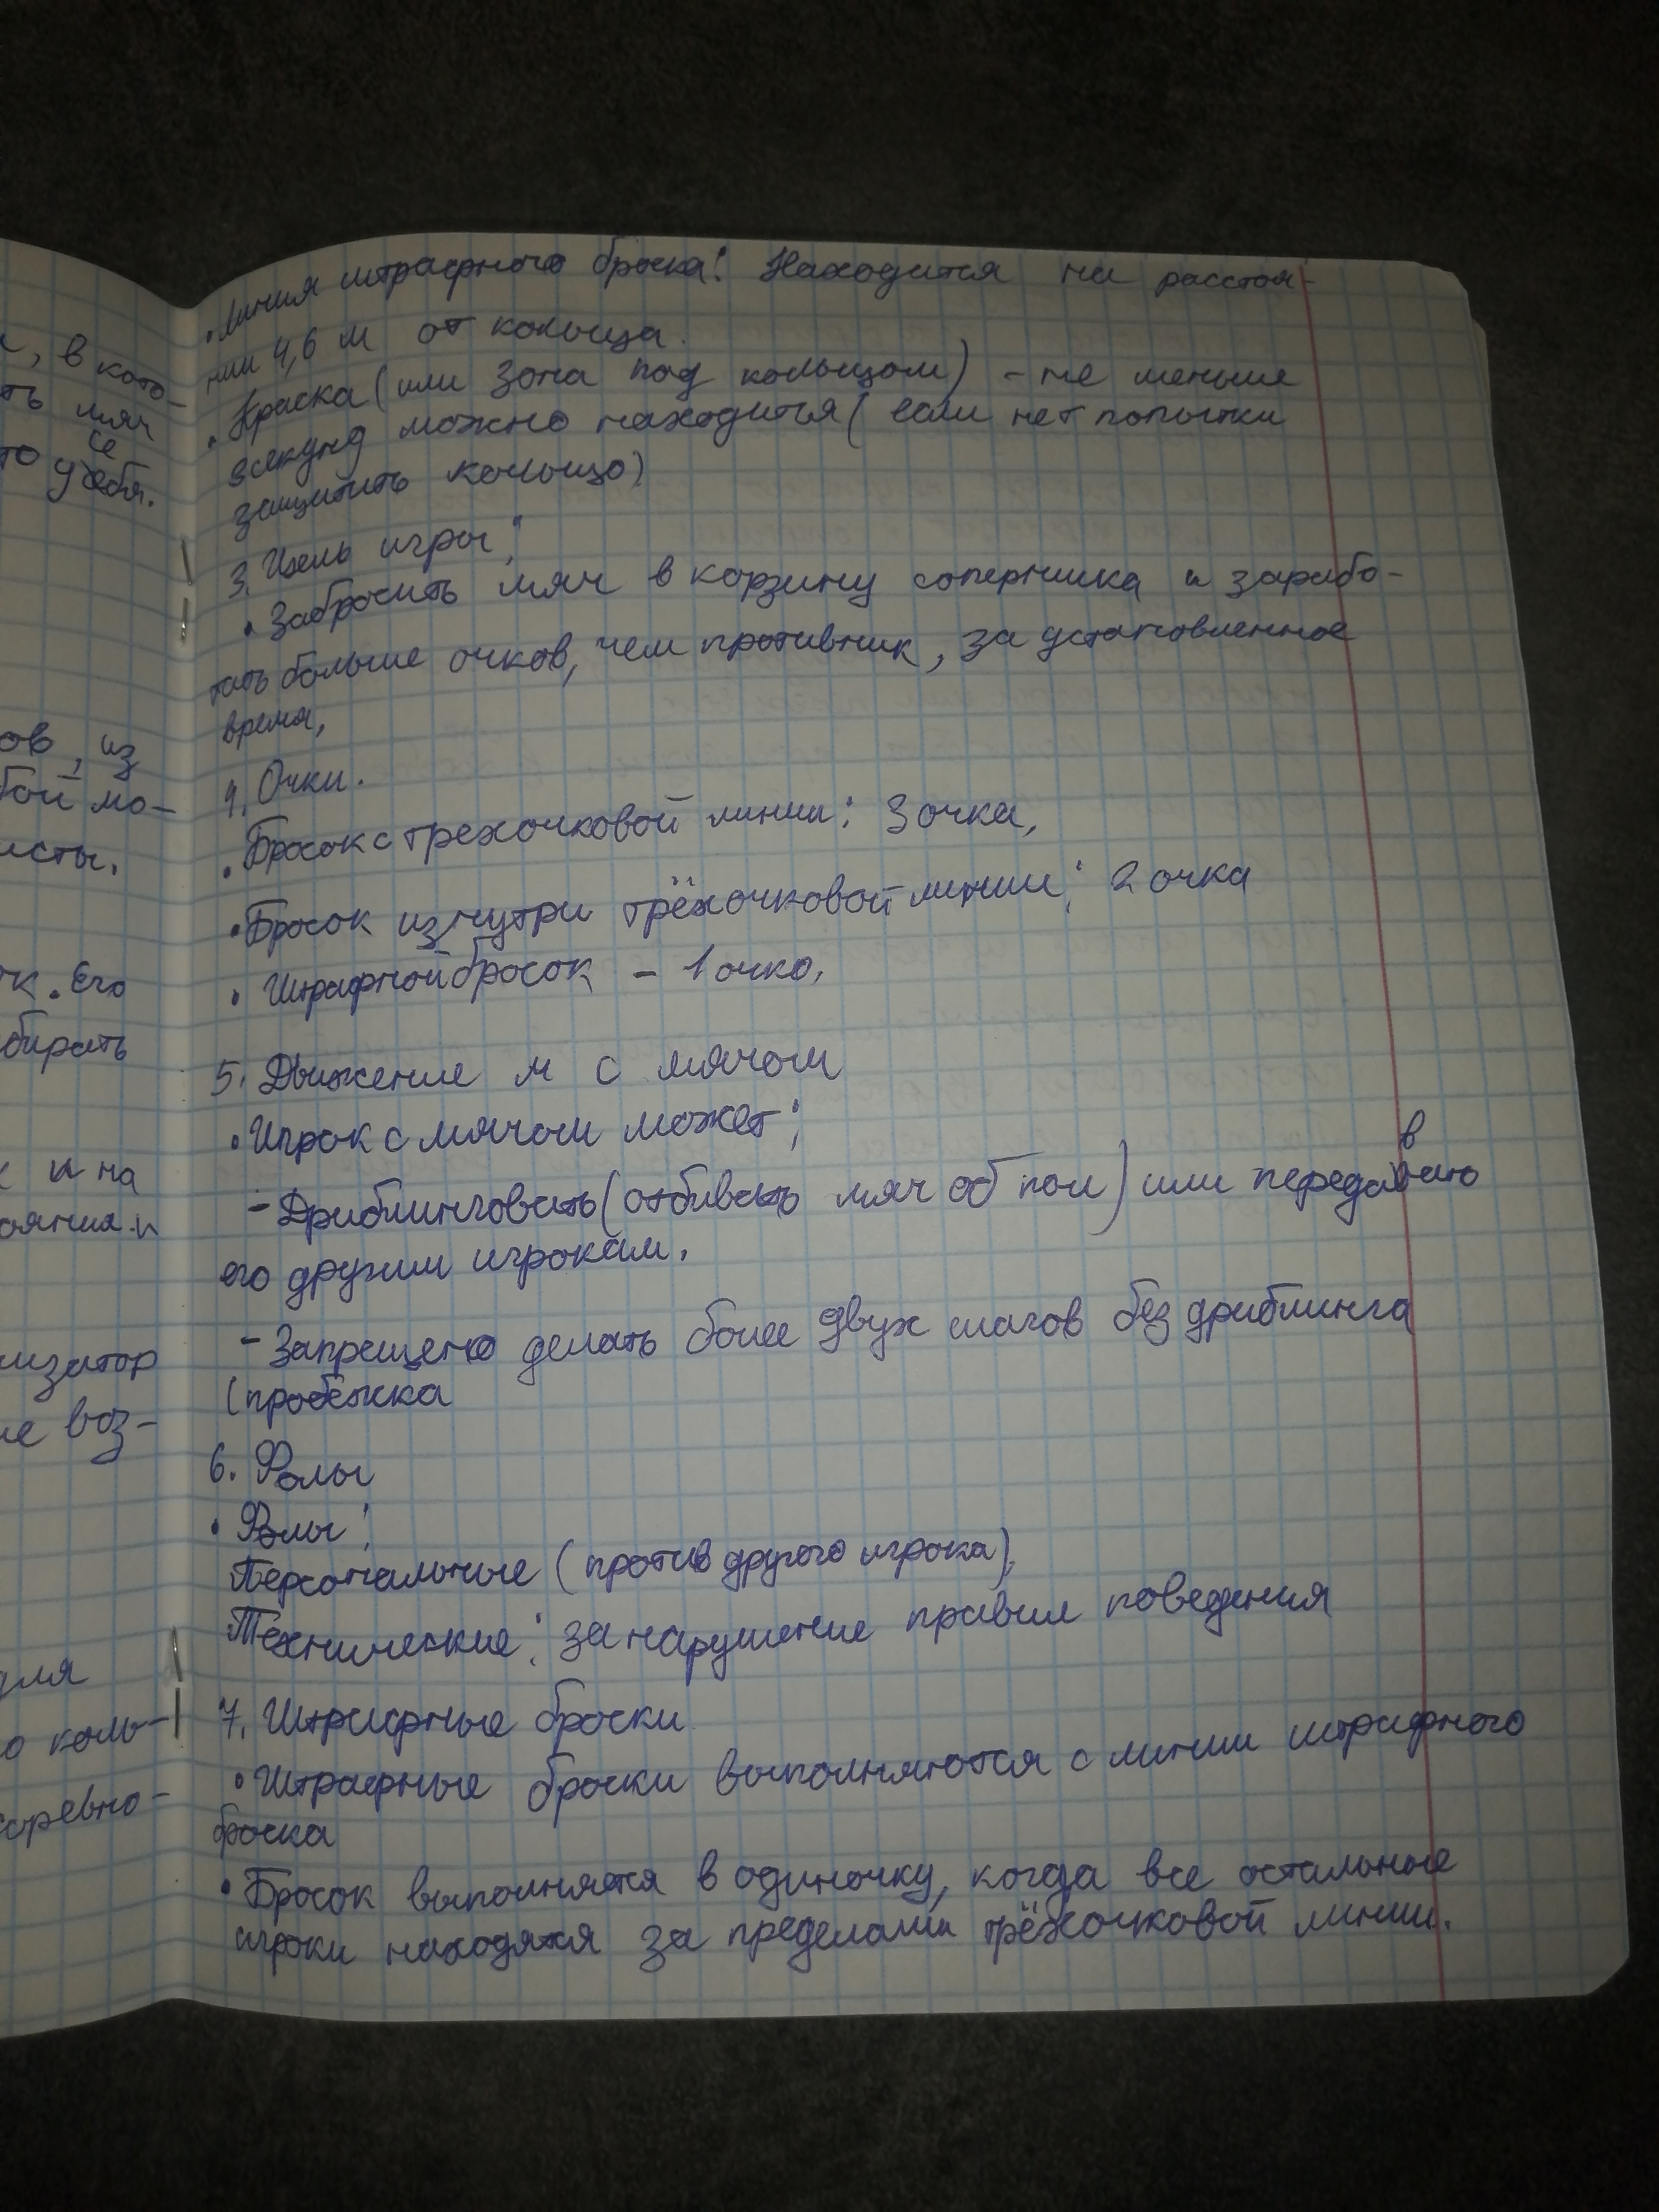 , в кото-
ть мяч
се
то у себя.
ов, из
бой мо-
исты.
ок. Его
бирать
и на
ояния и
изатор
ие воз-
для
о коль-
соревно-
• Линия штрафного броска: Находится на расстоя-
нии 4,6 м от кольца.
• Краска (или зона под кольцом) - не меньше
3 секунд можно находится (если нет попытки
защитить кольцо)
3. Цель игры:
• Забросить мяч в корзину соперника и зарабо-
тать больше очков, чем противник, за установленное
время,
4. Очки.
• Бросок с трехочковой линии: 3 очка,
• Бросок изнутри трёхочковой линии: 2 очка
• Штрафной бросок - 1 очко,
5. Движение м с мячом
• Игрок с мячом может:
в
- Дриблинговать (отбивать мяч об пол) или передавать
его другим игрокам.
- Запрещено делать более двух шагов без дриблинга
(пробежка
6. Фолы
• Фолы:
Персональные (против другого игрока),
Технические: за нарушение правил поведения
7. Штрафные броски
• Штрафные броски выполняются с линии штрафного
броска
• Бросок выполняется в одиночку, когда все остальные
игроки находятся за пределами трёхочковой линии.